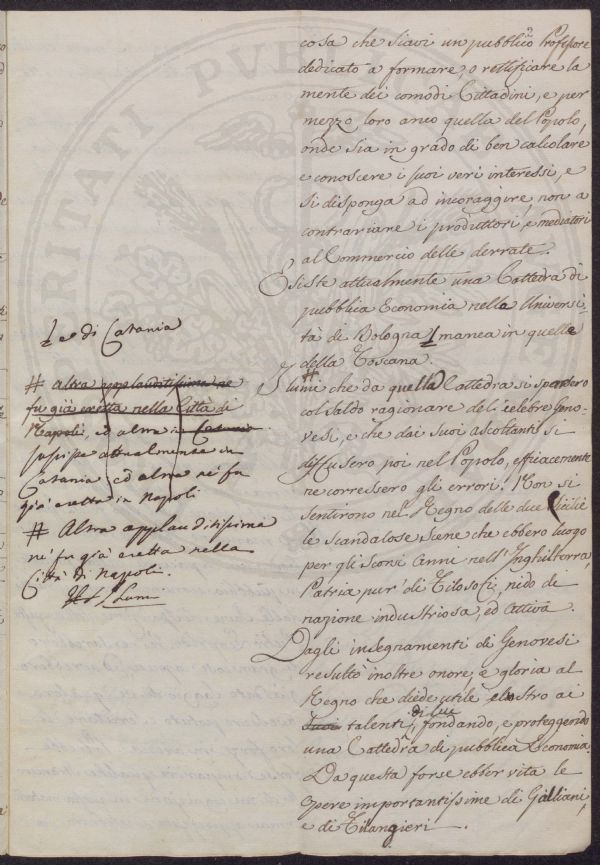 cosa che siavi un pubblico Professore
dedicato a formare, o rettificare la
mente dei comodi Cittadini, e per
mezzo loro anco quella del Popolo,
onde sia in grado di ben calcolare
e conoscere i suoi veri interessi, e
si disponga ad incoraggire, non a
contrariare i produttori, e mediatori
al Commercio delle derrate.
Esiste attualmente una Cattedra di
pubblica Economia nella Universi-
tà di Bologna manca in quelle
della Toscana.
#
I lumi che da quella Cattedra si sparsero
col saldo ragionare del celebre Geno-
vesi, e che dai suoi ascoltanti si
diffusero poi nel Popolo, efficacemente
ne corressero gli errori. Non si
sentirono nel Regno delle due Sicilie
le scandalose scene che ebbero luogo
per gli scorsi anni nell'Inghilterra,
Patria pur di Filosofi, nido de
nazione industriosa, ed attiva.
Dagli insegnamenti di Genovesi
resultò inoltre onore, e gloria al
Regno che diede utile lustro ai
suoi talenti, di lui fondando, e proteggendo
una Cattedra di pubblica Economia.
Da questa forse ebber vita le
opere importantissime di Galliani,
e di Filangieri.
e di Catania
# altra applauditissima ne
fu già eretta nella Città di
Napoli, ed altra in Catania
sussiste attualmente in
Catania ed altra ne fu
già eretta in Napoli
# Altra applauditissima
ne fu già eretta nella
Città di Napoli.
I Lumi